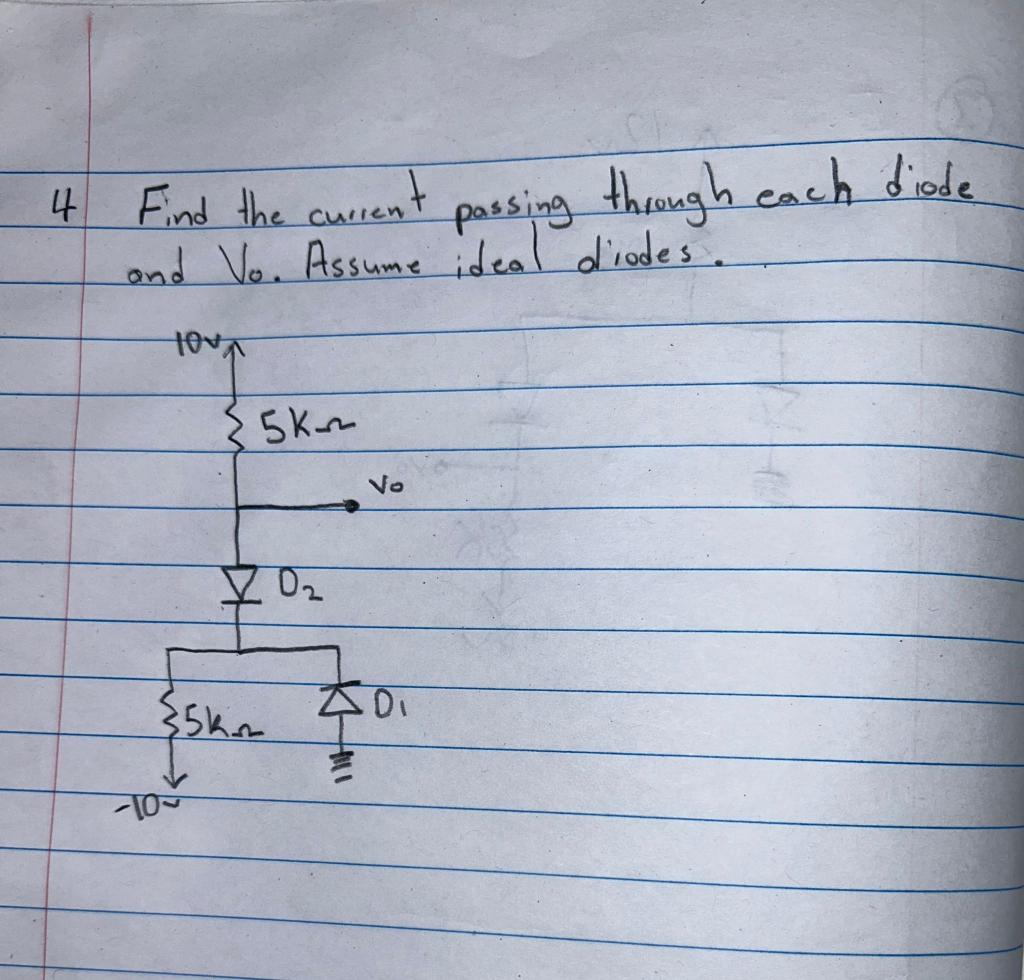 4 Find the current passing through each diode
and Vo. Assume ideal diodes.
10v
5KΩ
Vo
D2
5kΩ
D1
-10v